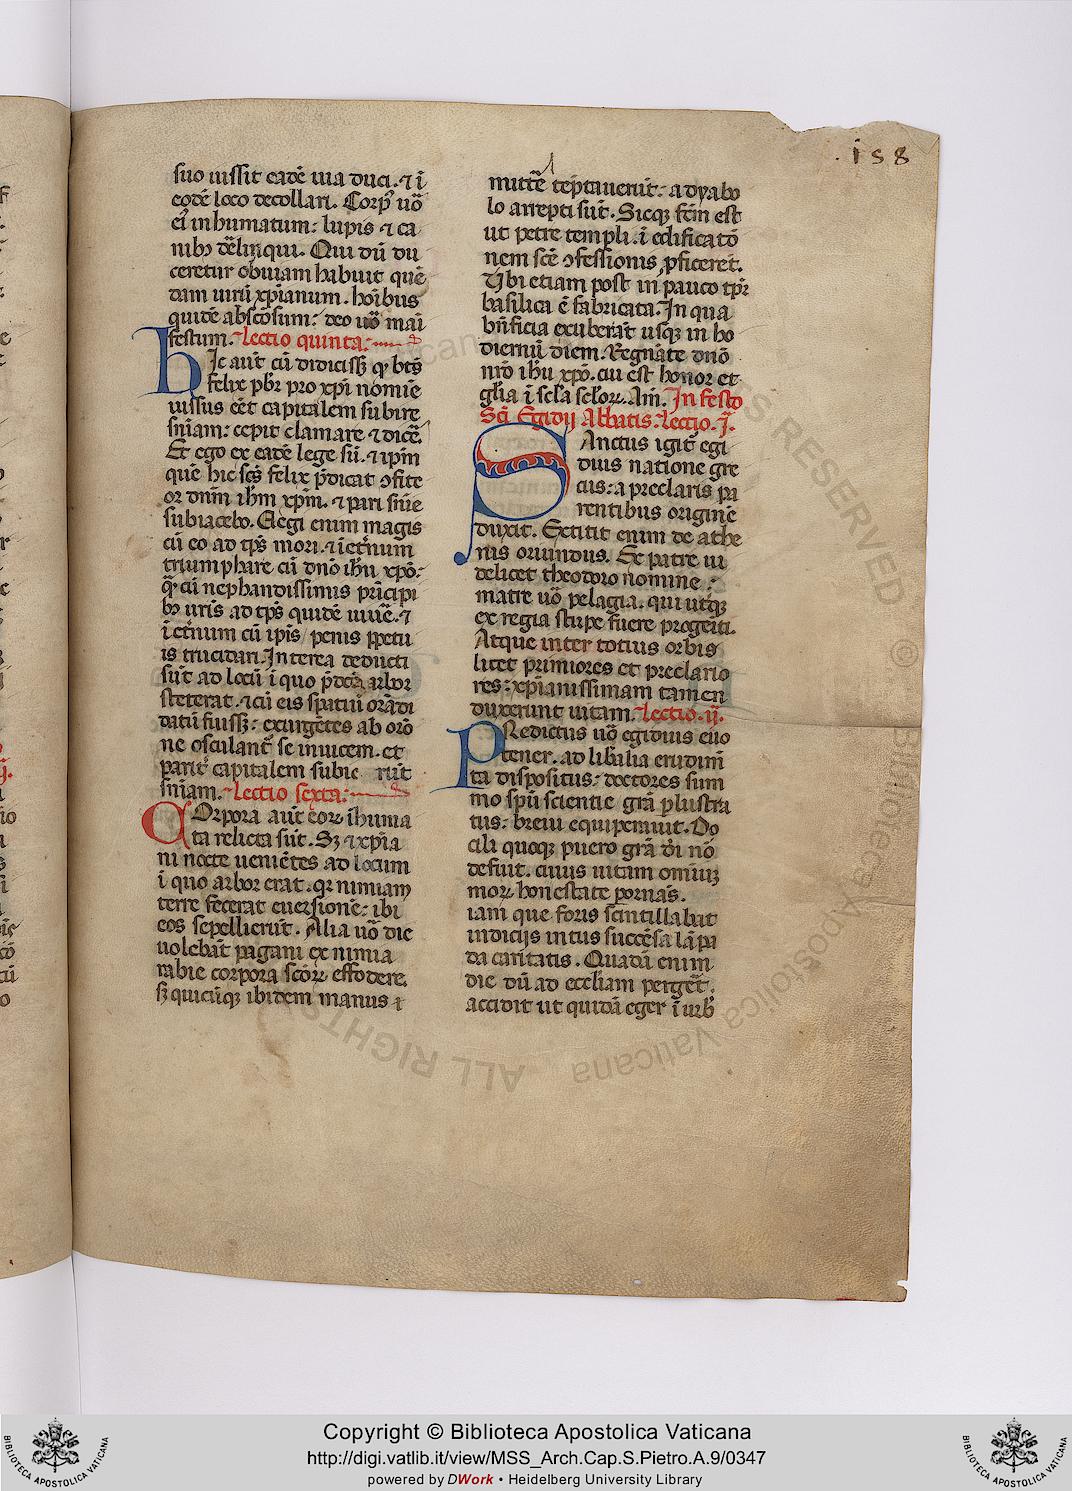 .158
suo iussit eadē uia duci. ⁊ ī
eodē loco decollari. Corpꝰ uō
eiꝰ inhumatum: lupis ⁊ ca
nibꝫ dēlinqui. Qui dū du
ceretur obuiam habuit quē
dam uirū xp̄ianum. hoībus
quidē absconsum: deo uō mani
festum. Lectio quinta:
hIc aut̄ cū didicissꝫ qꝭ bt̄s
felix pb̄r pro xp̄i nomīe
iussus eēt capitalem subire
sn̄iam: cepit clamare ⁊ dicē.
Et ego ex eadē lege sū. ⁊ ip̄m
quē hic sc̄s felix p̄dicat ꝯfite
or dn̄m ih̄m xp̄m. ⁊ pari sn̄ie
subiacebo. Elegi enim magis
cū eo ad tp̄s mori. ⁊ ī et̄num
triumphare cū dn̄o ih̄u xp̄o:
q̄ cū nephandissimus prīcipi
bꝫ uris ad tp̄s quidē uiuē. ⁊
ī et̄num cū ip̄is penis ꝑpetu
is trucidari. Interea deducti
sūt ad locū ī quo p̄dc̄a arbor
steterat. ⁊ cū eis spatiū orādi
datū fuissꝫ: exurgētes ab orō
ne osculant̄ se inuicem. et
parit̄ capitalem subie rūt
sn̄iam. Lectio sexta:
COrpora aut̄ eoꝝ ihuma
ta relicta sūt. Sꝫ ⁊ xp̄ia
ni nocte ueniētes ad locum
ī quo arbor erat. qꝛ nimiam
terre fecerat euersionē: ibi
eos sepellierūt. Alia uō die
uolebāt pagani ex nimia
rabie corpora sc̄oꝝ effodere.
sꝫ quicūqꝫ ibidem manus ī
mittē tēptauerūt: a dyabo
lo arrepti sūt. Sicqꝫ fc̄m est
ut petre templi. ī edificatō
nem sc̄e ꝯfessionis ꝓficeret.
Vbi etiam post in pauco tp̄r
basilica ē fabricata. In qua
bn̄ficia exuberāt usqꝫ in ho
diernū diem. Regnāte dn̄o
nr̄o ih̄u xp̄o. cui est honor et
gl̄ia ī sc̄la sc̄loꝝ. Am̄. In festo
Sc̄i Egidij Abbatis. Lectio. j̄.
SAnctus igit̄ egi
dius natione gre
cus: a preclaris pa
rentibus originē
duxit. Extitit enim de athe
nis oriundus. Ex patre ui
delicet theodoro nomine:
matre uō pelagia. qui utqꝫ
ex regia stirpe fuere progeiti.
Atque inter totius orbis
licet primiores et preclario
res: xp̄ianissimam tamen
duxerunt uitam. Lectio. ij̄.
PRedictus uō egidius euo
tener. ad libālia erudim̄
ta dispositus: doctores sum
mo sp̄u scientie gr̄a plustra
tus: breui equiperauit. Do
cili quoqꝫ puero gr̄a di nō
defuit. cuius uitam omīuꝫ
moꝝ honestate pornās.
iam que foris scintillabat
indicijs intus succēsa lāpa
da caritatis. Quadā enim
die dū ad eccliam pergēt.
accidit ut quidā eger ī urb̄
ALL RIGHTS RESERVED © Biblioteca Apostolica Vaticana
BIBLIOTECA APOSTOLICA VATICANA
Copyright © Biblioteca Apostolica Vaticana
http://digi.vatlib.it/view/MSS_Arch.Cap.S.Pietro.A.9/0347
powered by DWork • Heidelberg University Library
BIBLIOTECA APOSTOLICA VATICANA